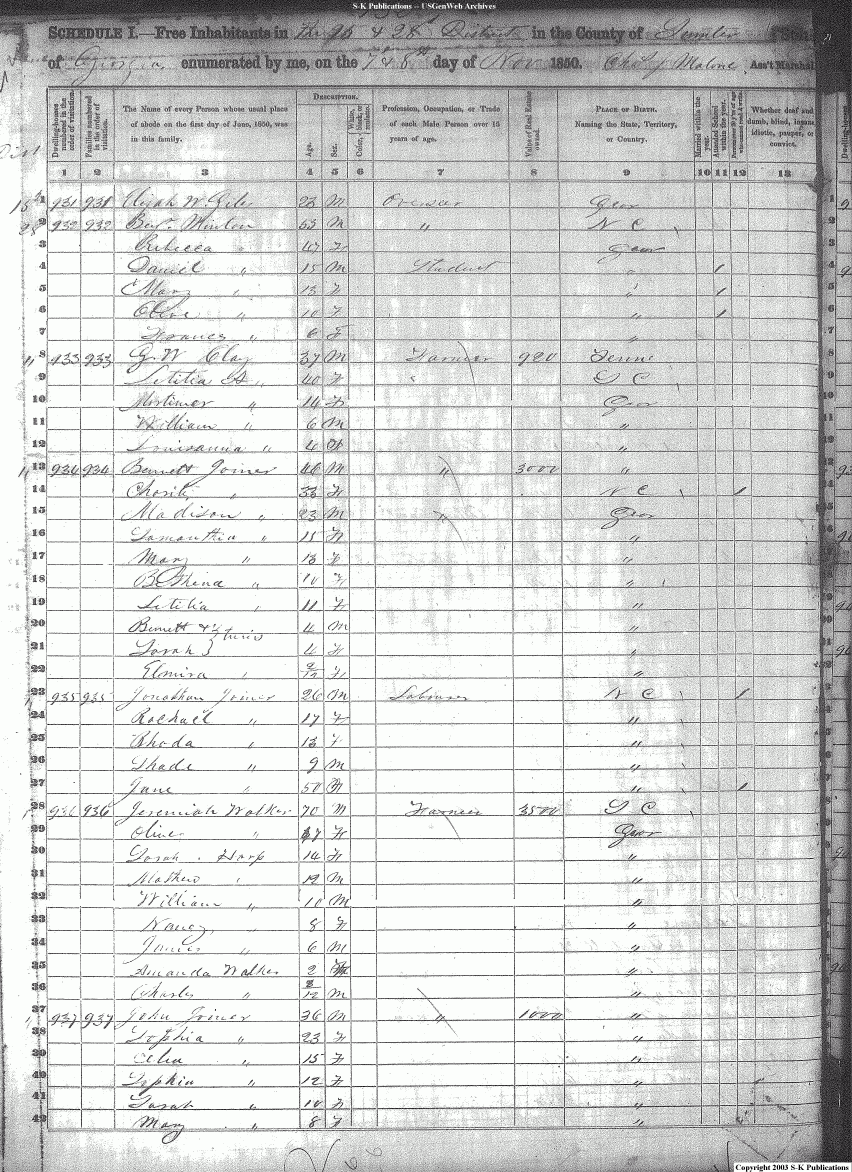 S-K Publications -- USGenWeb Archives
SCHEDULE I.—Free Inhabitants in The 15 & 28 Districts in the County of Sumter State
of Georgia enumerated by me, on the 7 & 8th day of Nov 1850. Chas J Malone Ass't Marshal
Dwelling-houses numbered in the order of visitation. Families numbered in the order of visitation. The Name of every Person whose usual place of abode on the first day of June, 1850, was in this family. DESCRIPTION. Age. Sex. White, black, or mulatto. Color, Profession, Occupation, or Trade of each Male Person over 15 years of age. Value of Real Estate owned. PLACE OF BIRTH. Naming the State, Territory, or Country. Married within the year. Attended School within the year. Whether deaf and dumb, blind, insane, idiotic, pauper, or convict.
1 2 3 4 5 6 7 8 9 10 11 12 13
1 931 931 Elijah W. 23 M Overseer Geor
2 932 932 Benj. Minton 53 M " N C
3 Rebecca " 47 F Geor
4 Daniel " 15 M Student " 1
5 Mary " 13 F " 1
6 " 10 F " 1
7 Frances " 6 F "
8 933 933 G. W. Clay 37 M Farmer 920 Tenne
9 Letitia " 40 F S C
10 Mortimer " 14 F Geor
11 William " 6 M "
12 Louisanna " 4 F "
13 934 934 Bennett Joiner 46 M " 3000 "
14 " 33 F N C 1
15 Madison " 23 M " Geor
16 Samanthia " 15 F "
17 Mary " 13 F "
18 Bethina " 10 F "
19 Letitia " 11 F "
20 Bennett & twins 4 M "
21 Sarah 4 F "
22 Elmira " 9/12 F "
23 935 935 Jonathan Joiner 26 M Labourer N C 1
24 Rachael " 17 F "
25 Rhoda " 13 F "
26 Shade " 9 M "
27 Jane " 50 F " 1
28 936 936 Jeremiah Walker 70 M Farmer 3500 S C
29 Olive " 37 F Geor
30 Sarah Harp 14 F "
31 Mathew " 12 M "
32 William " 10 M "
33 Nancy " 8 F "
34 James " 6 M "
35 Amanda Walker 2 "
36 Charles " M "
37 937 937 John Joiner 36 M " 1000 "
38 Sophia " 23 F "
39 Celia " 15 F "
40 Sophia " 12 F "
41 Sarah " 10 F "
42 Mary " 8 F "
Copyright 2003 S-K Publications